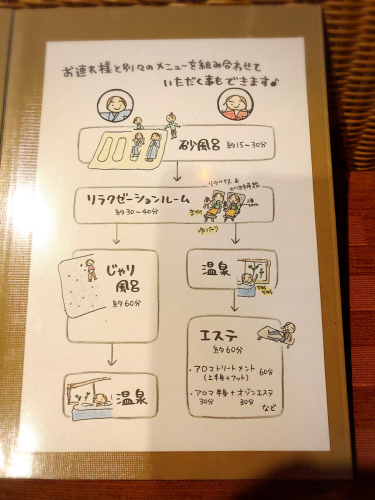 お連れ様と別々のメニューを組み合わせて
いただく事もできます♪
砂風呂 約15〜30分
リラクゼーションルーム
約30〜40分
リラックス&
ゆったり
じゃり
風呂
約60分
温泉
エステ
約60分
・アロマトリートメント 60分
(上半身+フット)
・アロマ半身+オゾンエステ
30分 30分
など
温泉